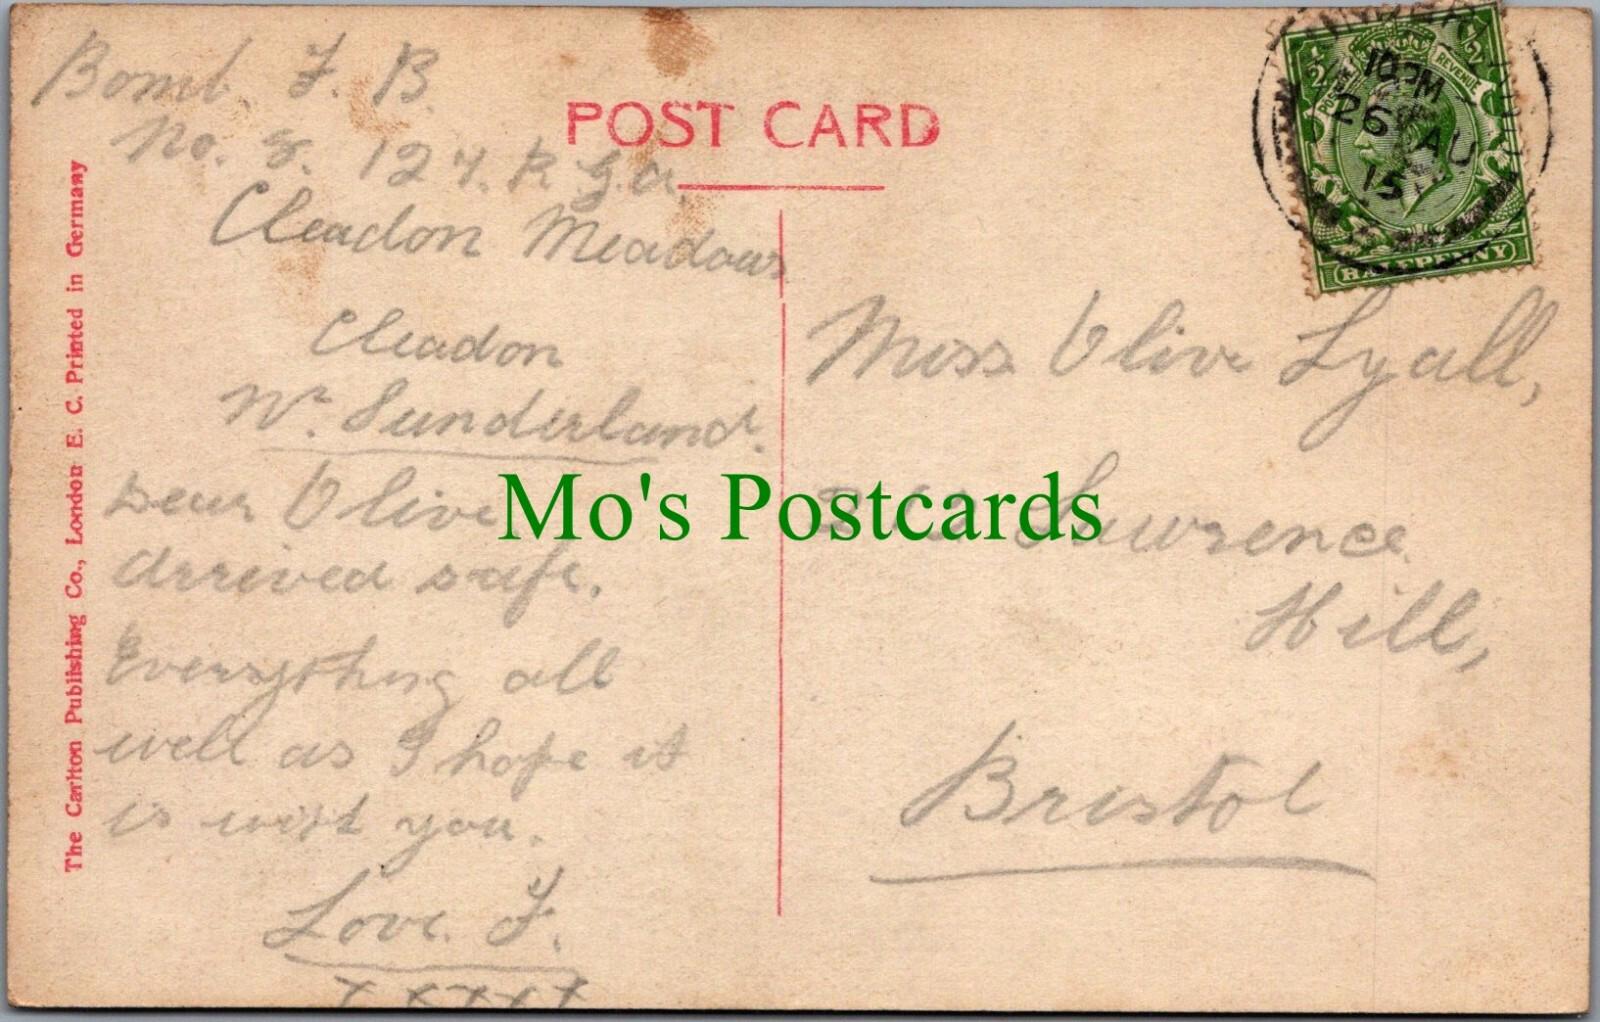 Bomb. F. B.
No. 8. 127. R.G.A.
Cleadon Meadows
Cleadon
Nr. Sunderland.
Dear Olive
arrived safe.
Everything all
well as I hope it
is with you.
Love. F.
xxxxx
POST CARD
The Carlton Publishing Co., London E. C. Printed in Germany
10 PM
26 AU
15
POSTAGE
REVENUE
1/2
1/2
HALFPENNY
Miss Olive Lyall,
Lawrence
Hill,
Bristol
Mo's Postcards